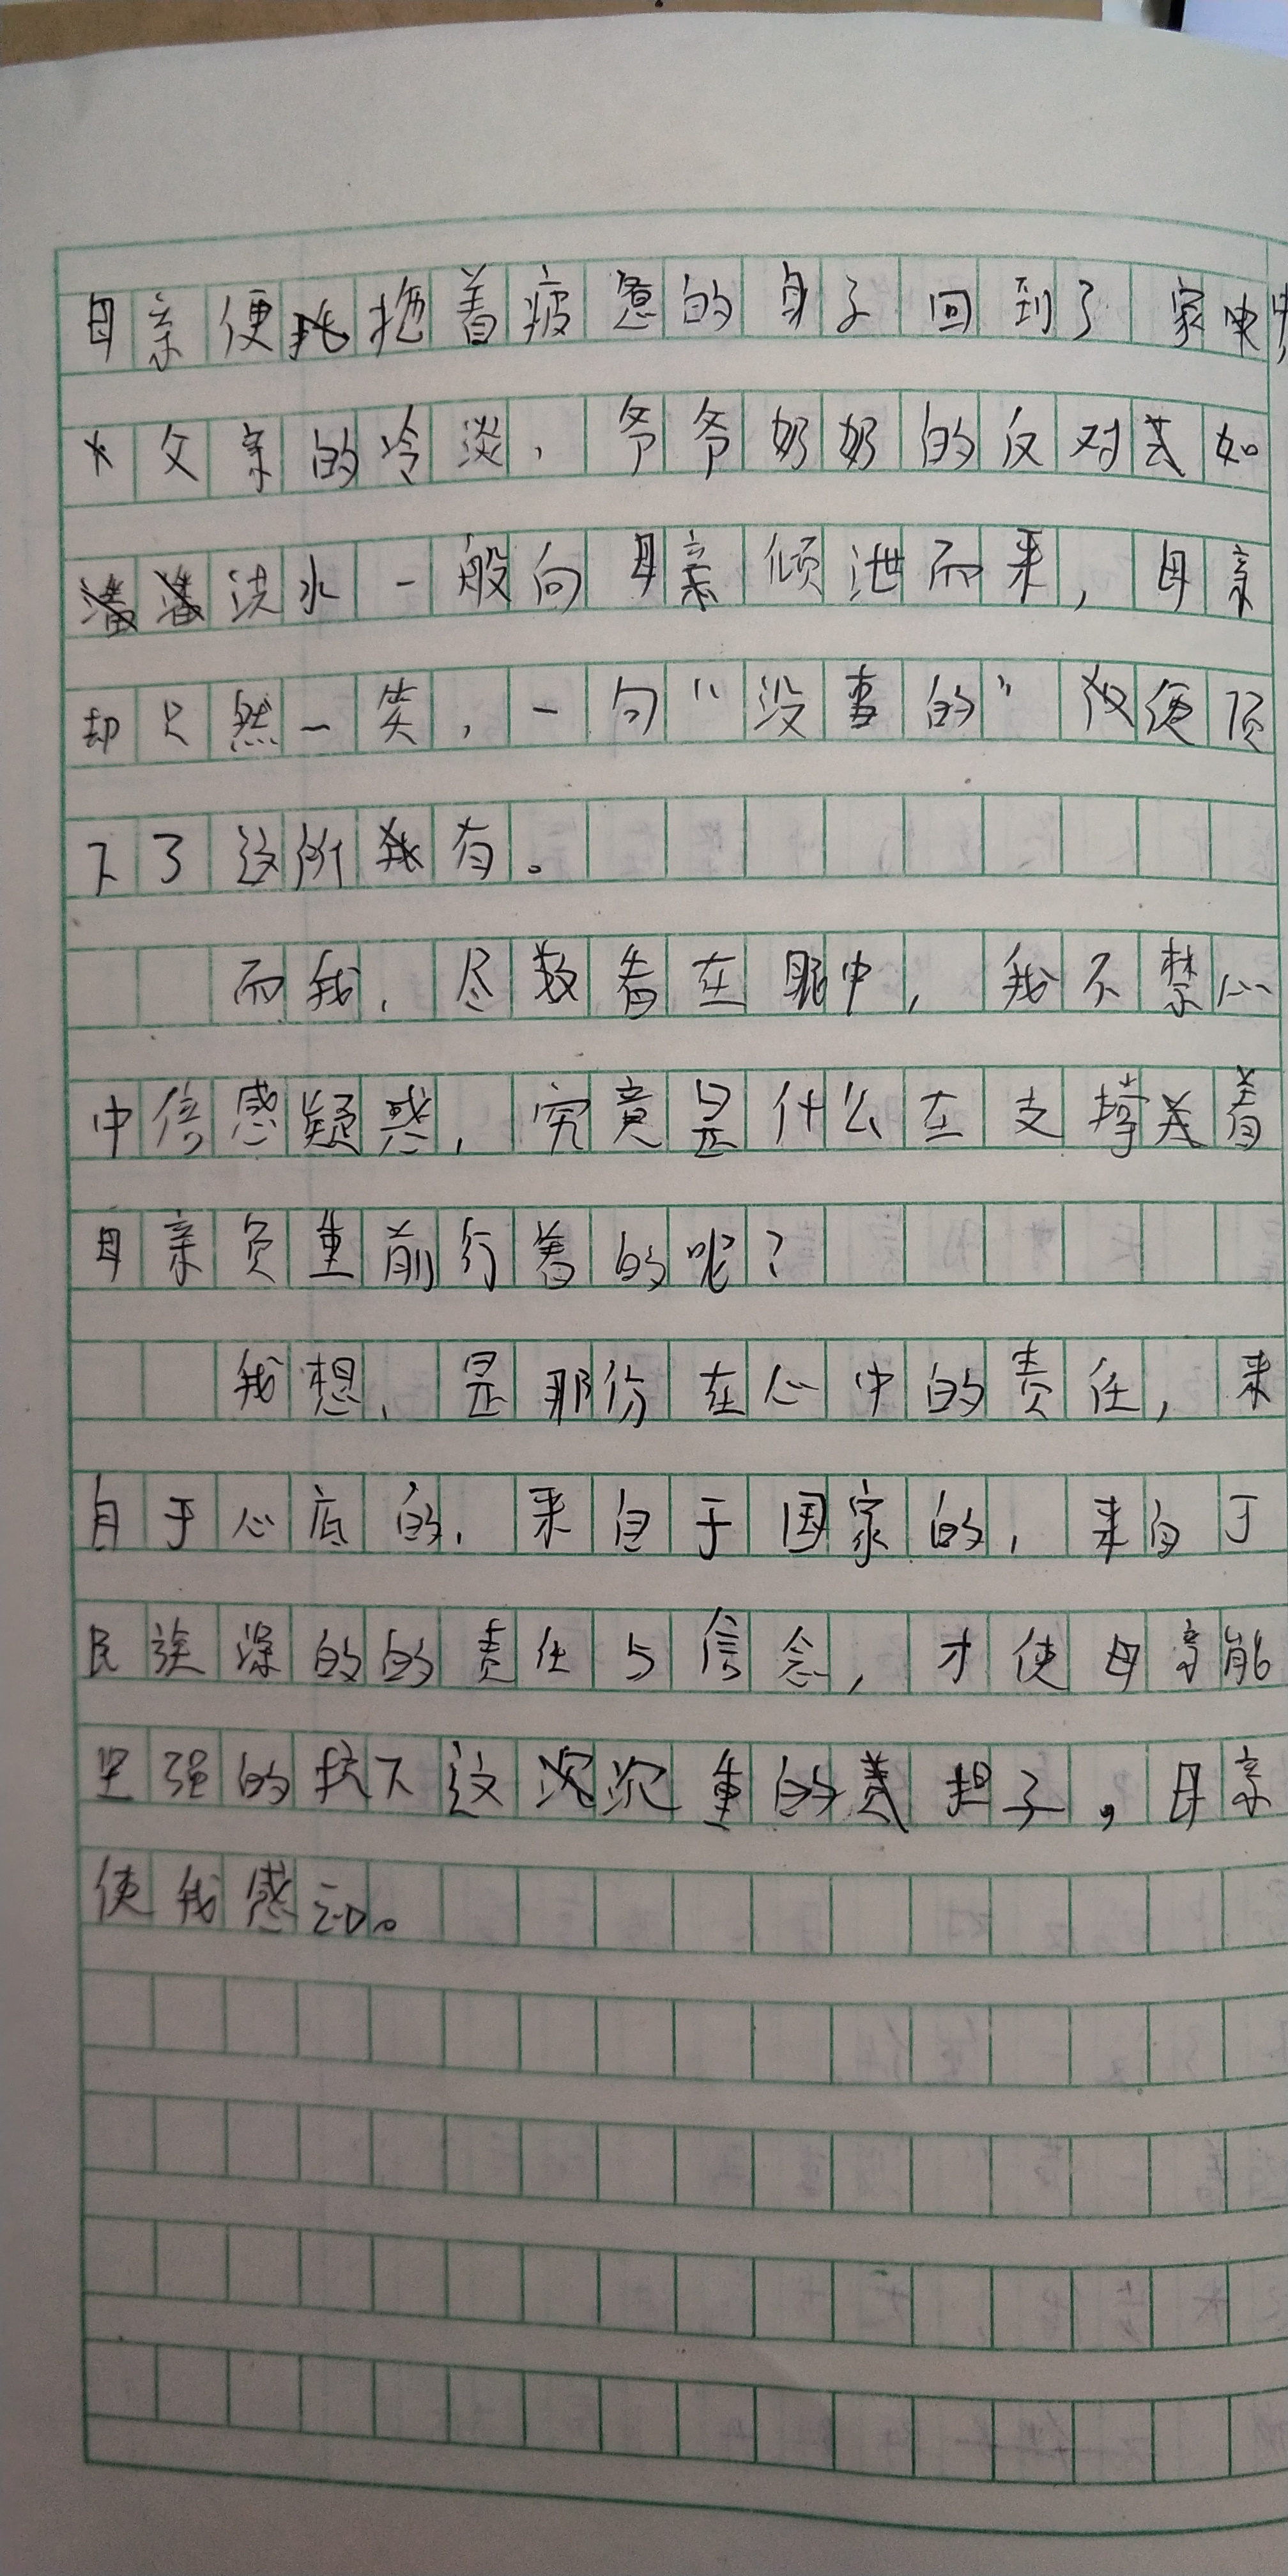 母亲便拖着疲惫的身子回到了家中
父亲的冷淡，爷爷奶奶的反对如
洪水一般向母亲倾泄而来，母亲
却只然一笑，一句“没事的”便顶
下了这所有。
而我，尽数看在眼中，我不禁心
中倍感疑惑，究竟是什么在支撑着
母亲负重前行着的呢？
我想，是那份在心中的责任，来
自于心底的，来自于国家的，来自于
民族深的的责任与信念，才使母亲能
坚强的抗下这沉重的担子，母亲
使我感动。